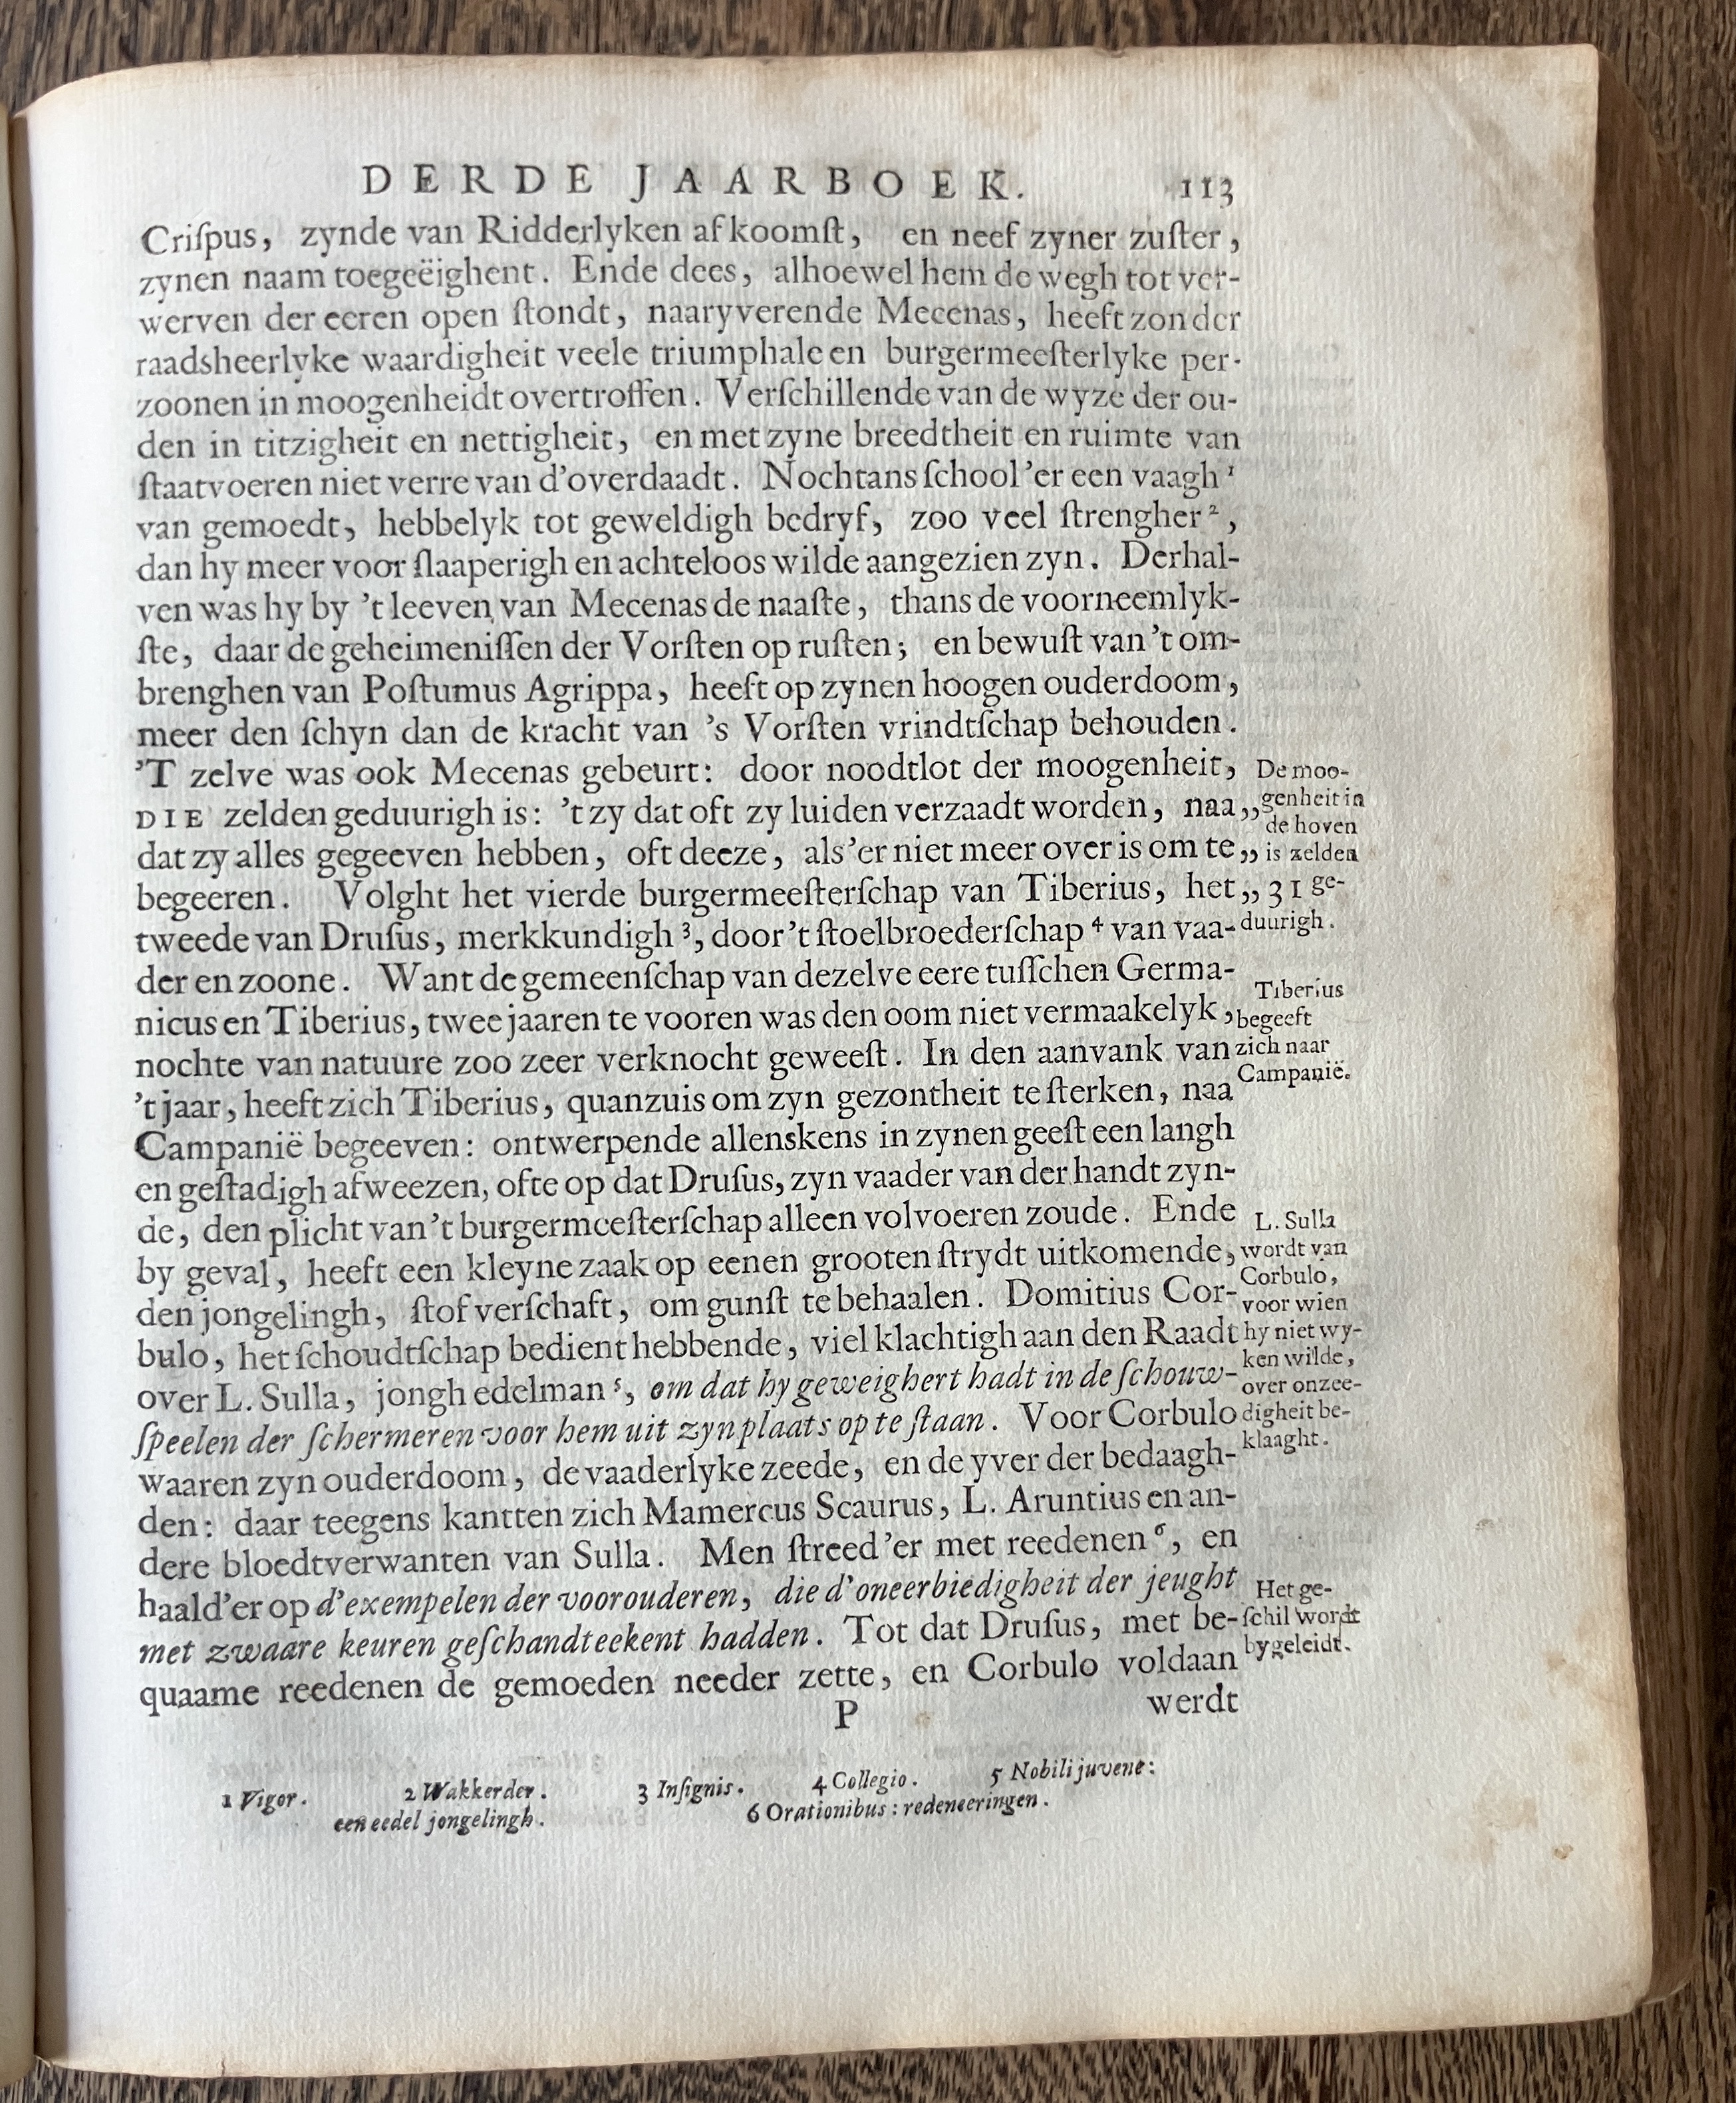 DERDE JAARBOEK. 113
Criſpus, zynde van Ridderlyken afkoomſt, en neef zyner zuſter,
zynen naam toegeëighent. Ende dees, alhoewel hem de wegh tot ver-
werven der eeren open ſtondt, naaryverende Mecenas, heeft zonder
raadsheerlyke waardigheit veele triumphale en burgermeeſterlyke per-
zoonen in moogenheidt overtroffen. Verſchillende van de wyze der ou-
den in titzigheit en nettigheit, en met zyne breedtheit en ruimte van
ſtaatvoeren niet verre van d'overdaadt. Nochtans ſchool'er een vaagh ¹
van gemoedt, hebbelyk tot geweldigh bedryf, zoo veel ſtrengher ²,
dan hy meer voor ſlaaperigh en achteloos wilde aangezien zyn. Derhal-
ven was hy by 't leeven van Mecenas de naaſte, thans de voorneemlyk-
ſte, daar de geheimeniſſen der Vorſten op ruſten; en bewuſt van 't om-
brenghen van Poſtumus Agrippa, heeft op zynen hoogen ouderdoom,
meer den ſchyn dan de kracht van 's Vorſten vrindtſchap behouden.
'T zelve was ook Mecenas gebeurt: door noodtlot der moogenheit,
DIE zelden geduurigh is: 't zy dat oft zy luiden verzaadt worden, naa „
dat zy alles gegeeven hebben, oft deeze, als'er niet meer over is om te „
begeeren. Volght het vierde burgermeeſterſchap van Tiberius, het „
tweede van Druſus, merkkundigh ³, door 't ſtoelbroederſchap ⁴ van vaa-
der en zoone. Want de gemeenſchap van dezelve eere tuſſchen Germa-
nicus en Tiberius, twee jaaren te vooren was den oom niet vermaakelyk,
nochte van natuure zoo zeer verknocht geweeſt. In den aanvank van
't jaar, heeft zich Tiberius, quanzuis om zyn gezontheit te ſterken, naa
Campanië begeeven: ontwerpende allenskens in zynen geeſt een langh
en geſtadigh afweezen, ofte op dat Druſus, zyn vaader van der handt zyn-
de, den plicht van 't burgermeeſterſchap alleen volvoeren zoude. Ende
by geval, heeft een kleyne zaak op eenen grooten ſtrydt uitkomende,
den jongelingh, ſtof verſchaft, om gunſt te behaalen. Domitius Cor-
bulo, het ſchoudtſchap bedient hebbende, viel klachtigh aan den Raadt
over L. Sulla, jongh edelman ⁵, om dat hy geweighert hadt in de ſchouw-
ſpeelen der ſchermeren voor hem uit zyn plaats op te ſtaan. Voor Corbulo
waaren zyn ouderdoom, de vaaderlyke zeede, en de yver der bedaagh-
den: daar teegens kantten zich Mamercus Scaurus, L. Aruntius en an-
dere bloedtverwanten van Sulla. Men ſtreed'er met reedenen ⁶, en
haald'er op d'exempelen der voorouderen, die d'oneerbiedigheit der jeught
met zwaare keuren geſchandteekent hadden. Tot dat Druſus, met be-
quaame reedenen de gemoeden needer zette, en Corbulo voldaan
P werdt
De moo-
genheit in
de hoven
is zelden
31 ge-
duurigh.
Tiberius
begeeft
zich naar
Campanië.
L. Sulla
wordt van
Corbulo,
voor wien
hy niet wy-
ken wilde,
over onzee-
digheit be-
klaaght.
Het ge-
ſchil wordt
bygeleidt.
1 Vigor. 2 Wakkerder. 3 Inſignis. 4 Collegio. 5 Nobili juvene:
een eedel jongelingh. 6 Orationibus: redeneeringen.